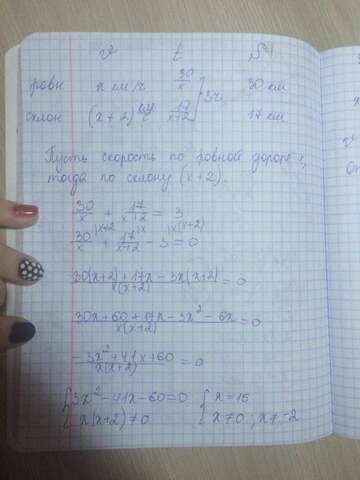 v t S
ровн x км/ч 30/x 30 км
склон (x+2) км/ч 17/(x+2) } 3ч 17 км
Пусть скорость по ровной дороге x,
тогда по склону (x+2).
30/x + 17/(x+2) = 3
30/x |x+2 + 17/(x+2) |x - 3 |x(x+2) = 0
(30(x+2)+17x-3x(x+2))/(x(x+2)) = 0
(30x+60+17x-3x²-6x)/(x(x+2)) = 0
(-3x²+41x+60)/(x(x+2)) = 0
{3x²-41x-60=0 {x=15
x(x+2)≠0 x≠0, x≠-2